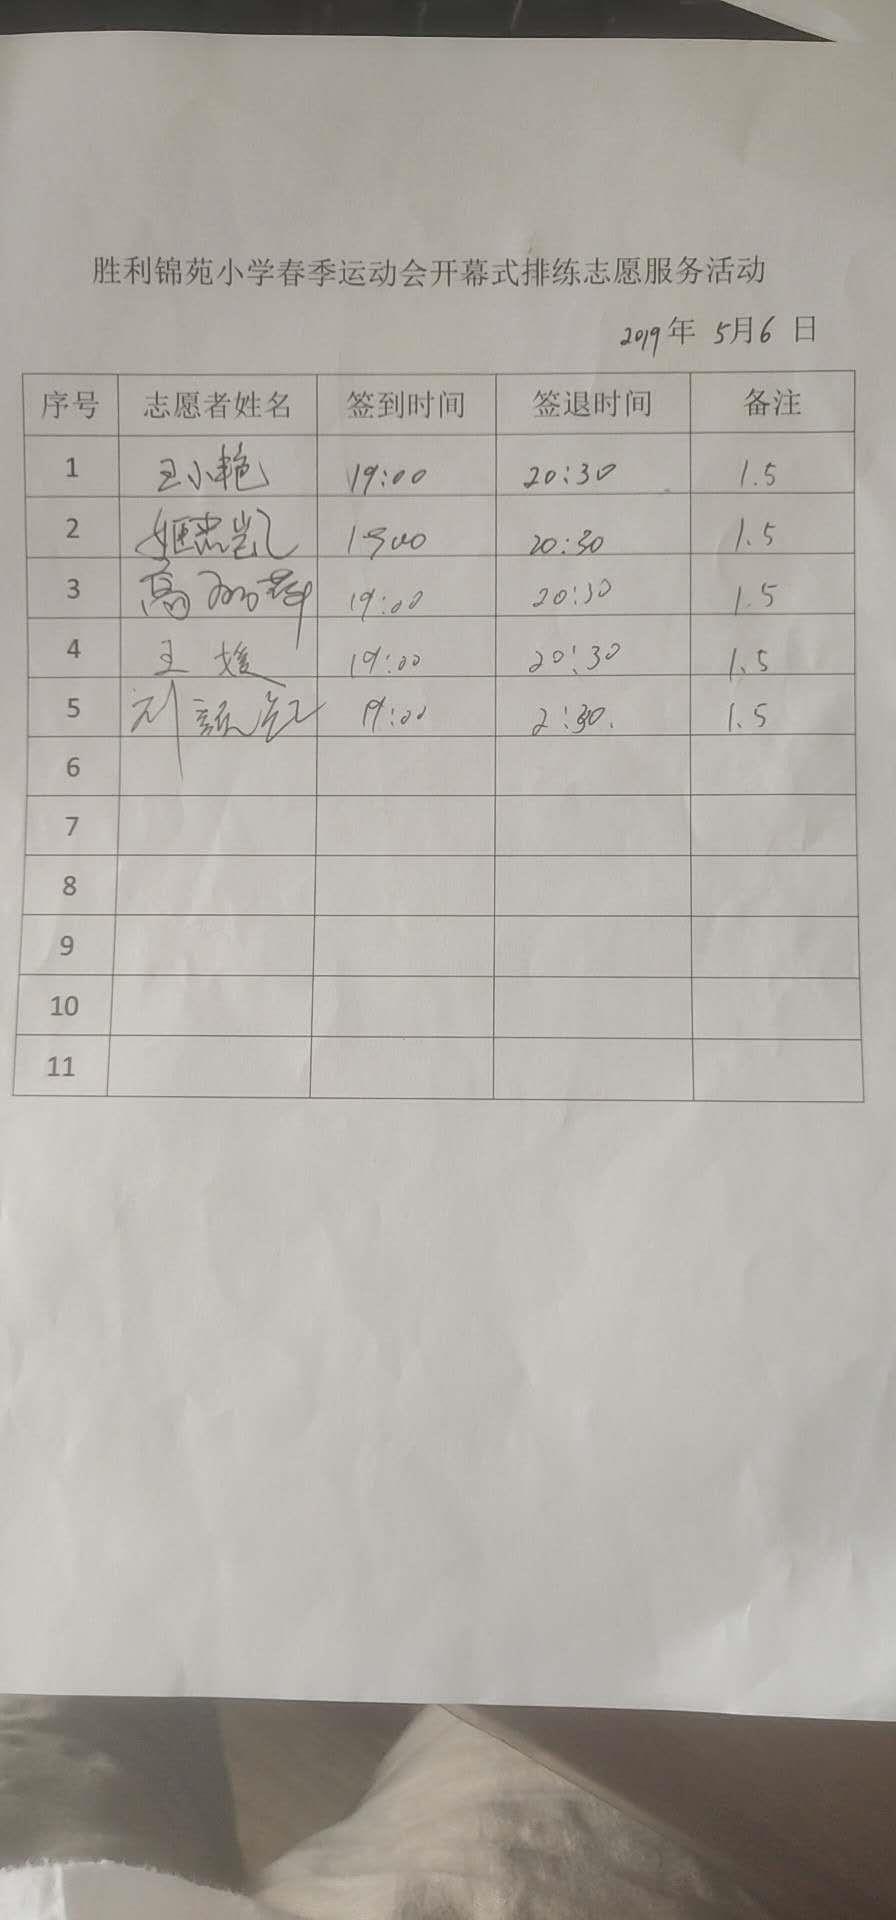 胜利锦苑小学春季运动会开幕式排练志愿服务活动
2019年 5月6 日
序号 志愿者姓名 签到时间 签退时间 备注
1 王小艳 19:00 20:30 1.5
2 姬忠凯 19:00 20:30 1.5
3 高 19:00 20:30 1.5
4 王媛 19:00 20:30 1.5
5 刘 19:00 2:30. 1.5
6
7
8
9
10
11